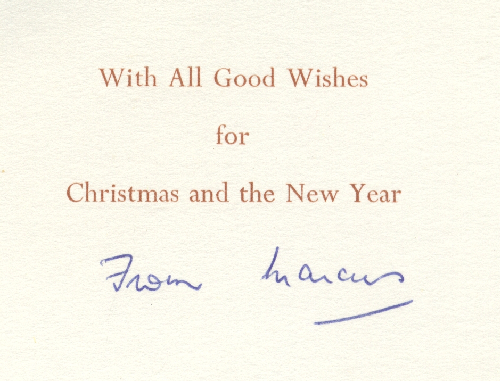 With All Good Wishes
for
Christmas and the New Year
From Marcus